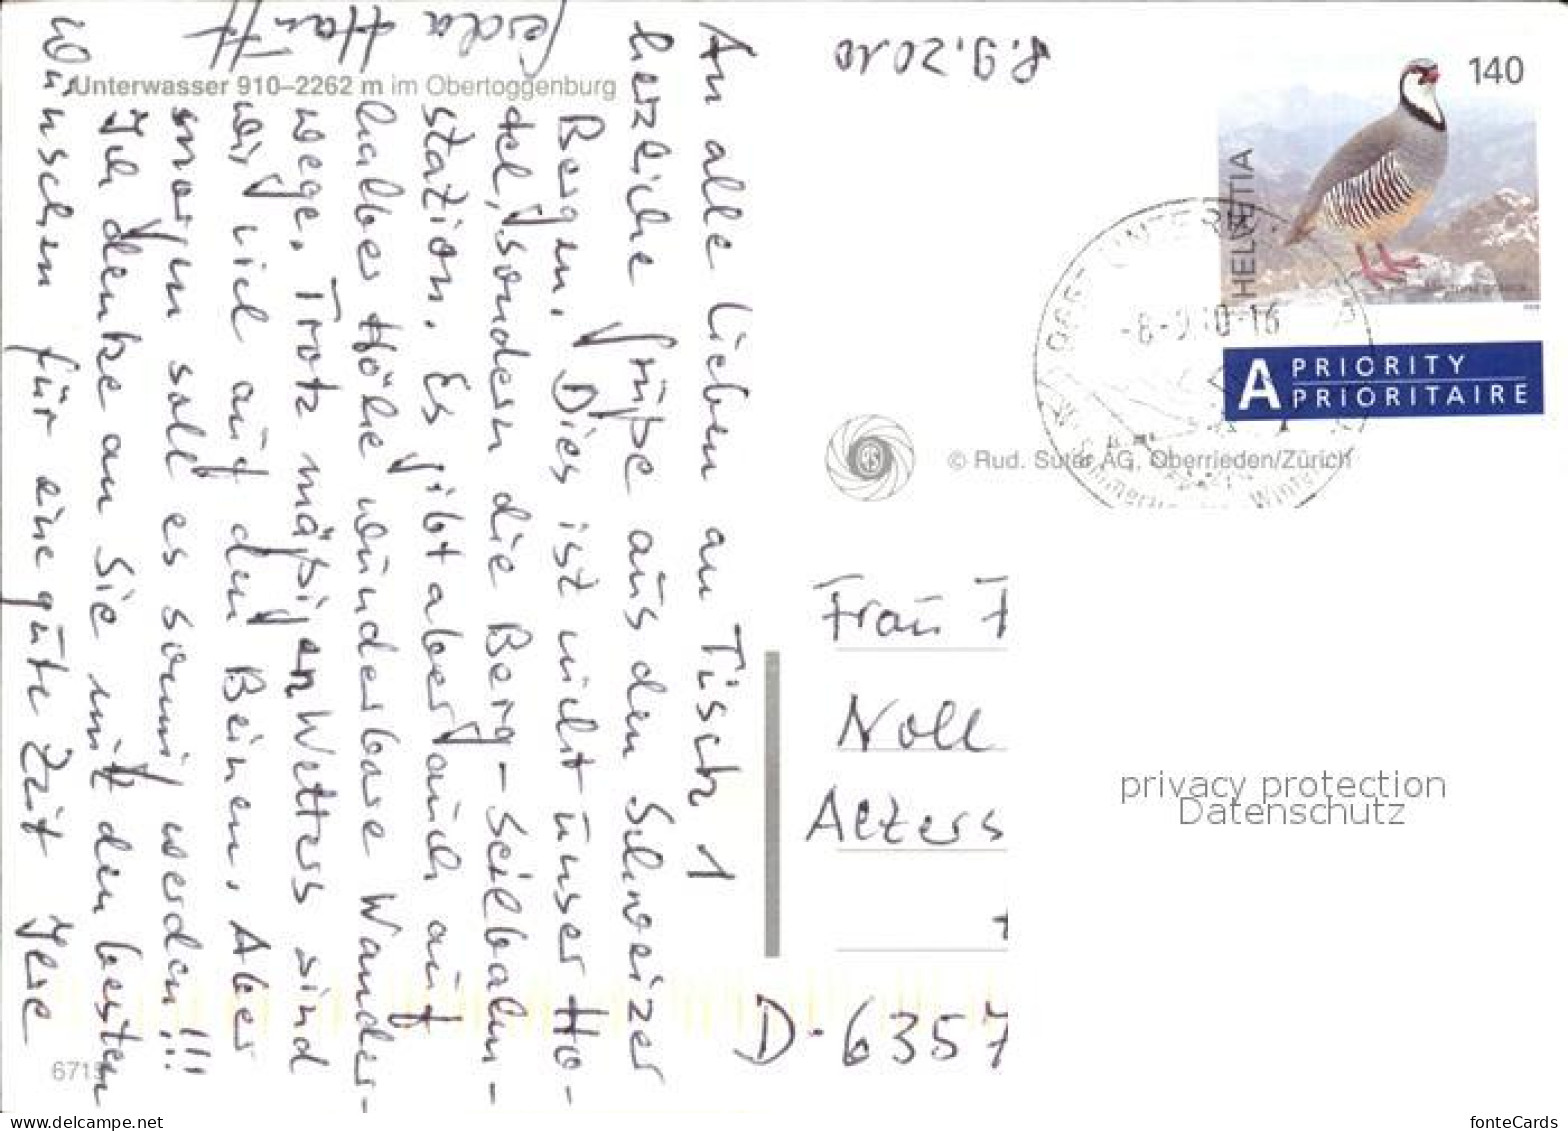 8.9.2010
An alle lieben an Tisch 1
herzliche Grüße aus den Schweizer
Bergen. Dies ist nicht unser Ho-
tel, sondern die Berg-Seilbahn-
station. Es gibt aber auch auf
halber Höhe wunderbare Wander-
wege. Trotz mäßigen Wetters sind
wir viel auf den Beinen. Aber
morgen soll es sonnig werden!!!
Ich denke an Sie mit den besten
Wünschen für eine gute Zeit Ihre
Hartt
Unterwasser 910–2262 m im Obertoggenburg
140
HELVETIA
A PRIORITY
PRIORITAIRE
-8-9.10-16
© Rud. Suter AG, Oberrieden/Zürich
Frau
Noll
Alters
D-6357
privacy protection
Datenschutz
671
www.oldthing.com
fonteCards